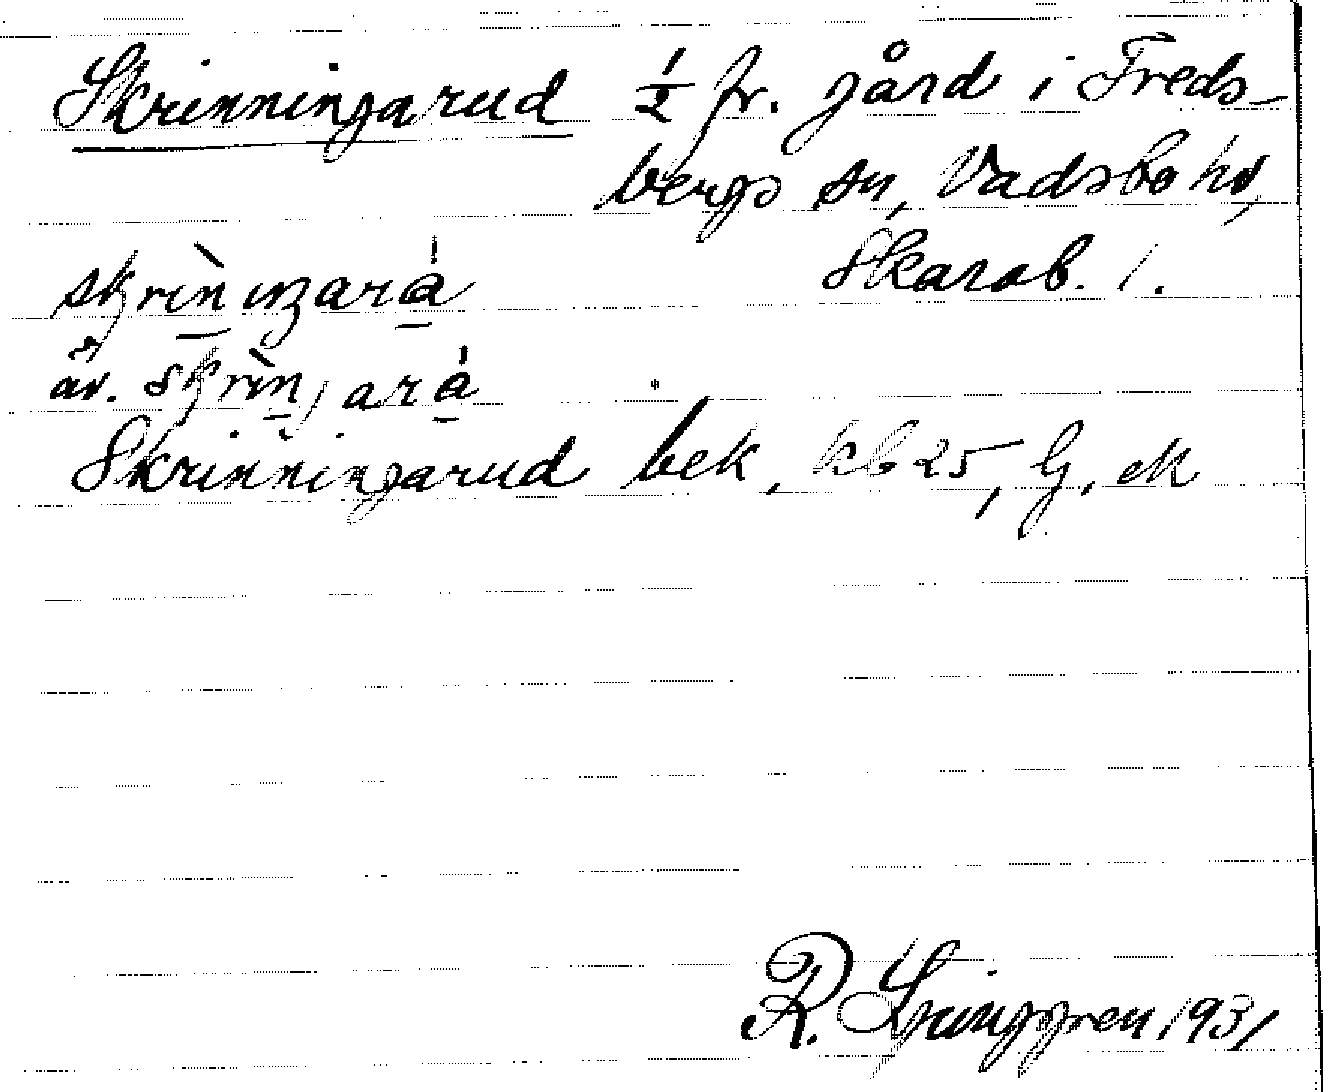 Skrinningarud ½ fr. gård i Freds-
bergs sn, Vadsbo hd,
Skarab. l.
skrìnıŋará
äv. skrìnjará
Skrinningarud bek, kb 25, G, ek
R. Ljunggren 1931